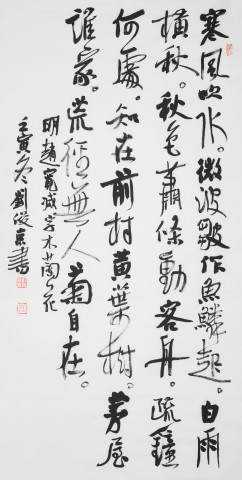 寒風吹水。微波皺作魚鱗起。白雨
橫秋。秋色蕭條動客舟。疏鐘
何處。知在前村黃葉樹。茅屋
誰家。荒徑無人菊自在。
明趙寬減字木蘭花
壬寅冬劉書